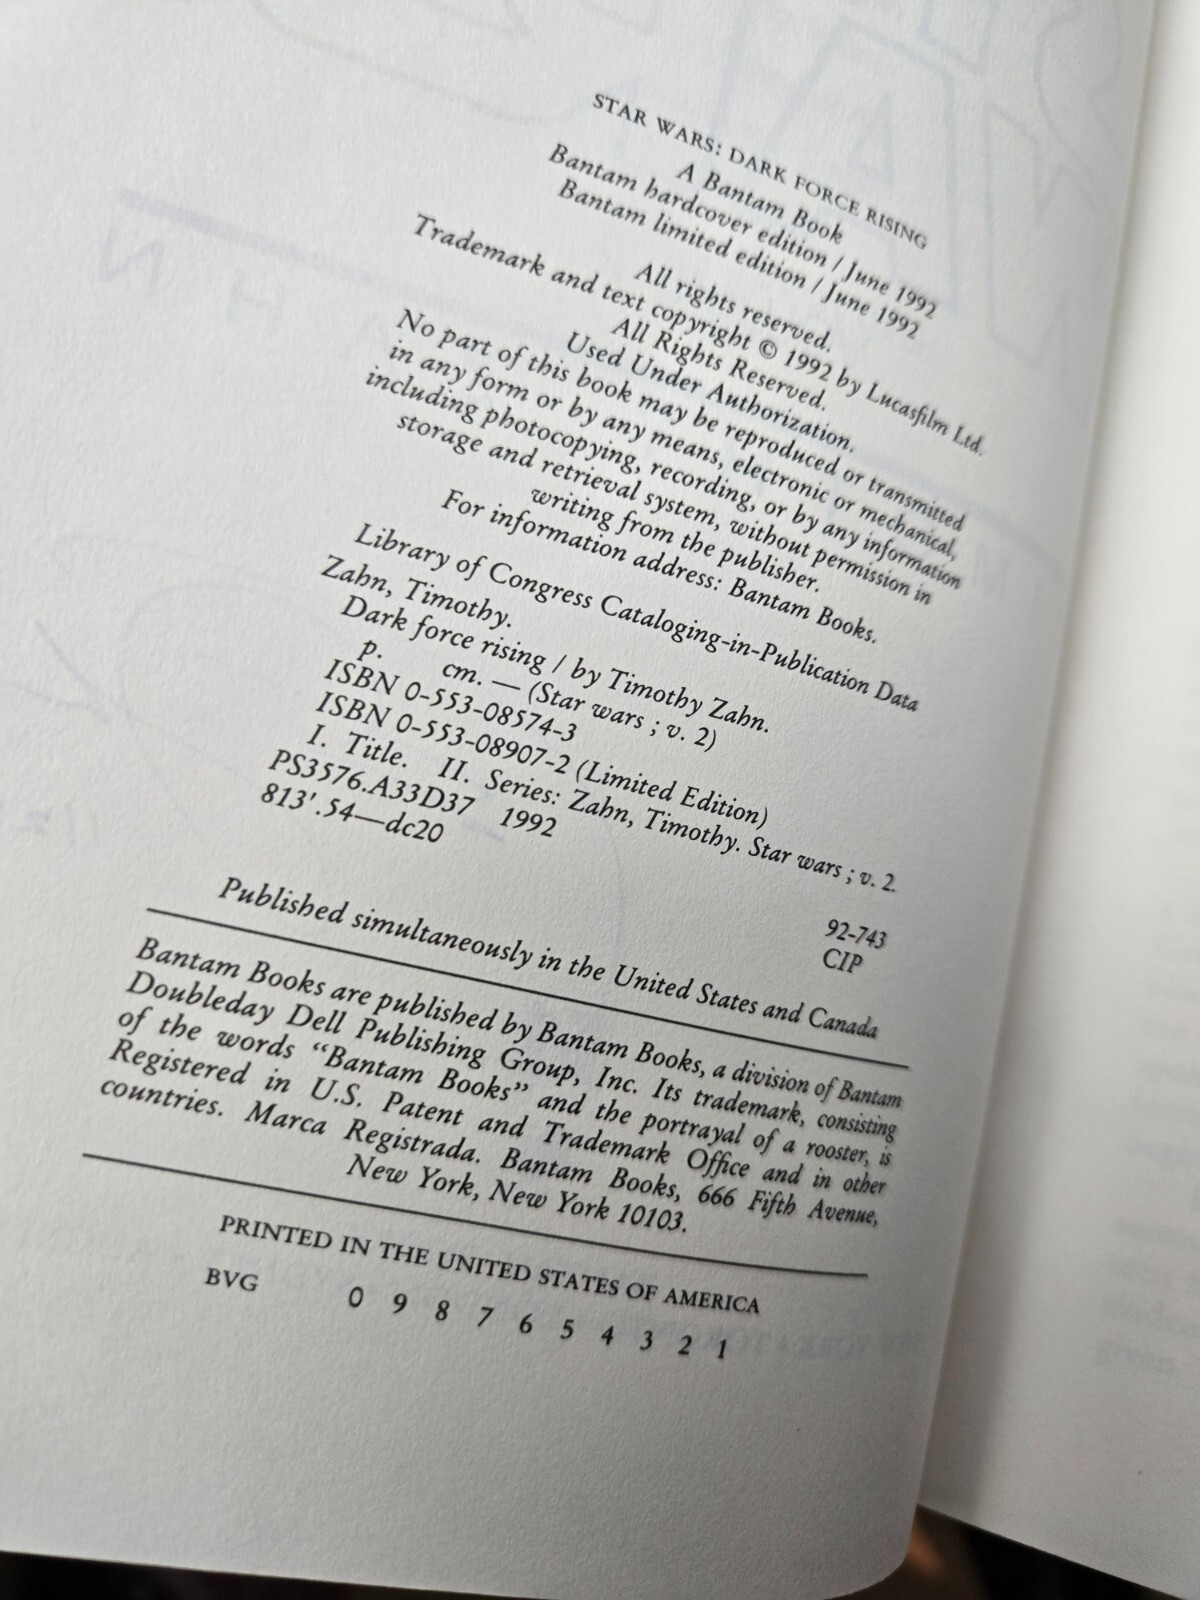 STAR WARS: DARK FORCE RISING
A Bantam Book
Bantam hardcover edition / June 1992
Bantam limited edition / June 1992
All rights reserved.
Trademark and text copyright © 1992 by Lucasfilm Ltd.
All Rights Reserved.
Used Under Authorization.
No part of this book may be reproduced or transmitted
in any form or by any means, electronic or mechanical,
including photocopying, recording, or by any information
storage and retrieval system, without permission in
writing from the publisher.
For information address: Bantam Books.
Library of Congress Cataloging-in-Publication Data
Zahn, Timothy.
Dark force rising / by Timothy Zahn.
p. cm. — (Star wars ; v. 2)
ISBN 0-553-08574-3
ISBN 0-553-08907-2 (Limited Edition)
I. Title. II. Series: Zahn, Timothy. Star wars ; v. 2.
PS3576.A33D37 1992
813'.54—dc20
92-743
CIP
Published simultaneously in the United States and Canada
Bantam Books are published by Bantam Books, a division of Bantam
Doubleday Dell Publishing Group, Inc. Its trademark, consisting
of the words “Bantam Books” and the portrayal of a rooster, is
Registered in U.S. Patent and Trademark Office and in other
countries. Marca Registrada. Bantam Books, 666 Fifth Avenue,
New York, New York 10103.
PRINTED IN THE UNITED STATES OF AMERICA
BVG 0 9 8 7 6 5 4 3 2 1